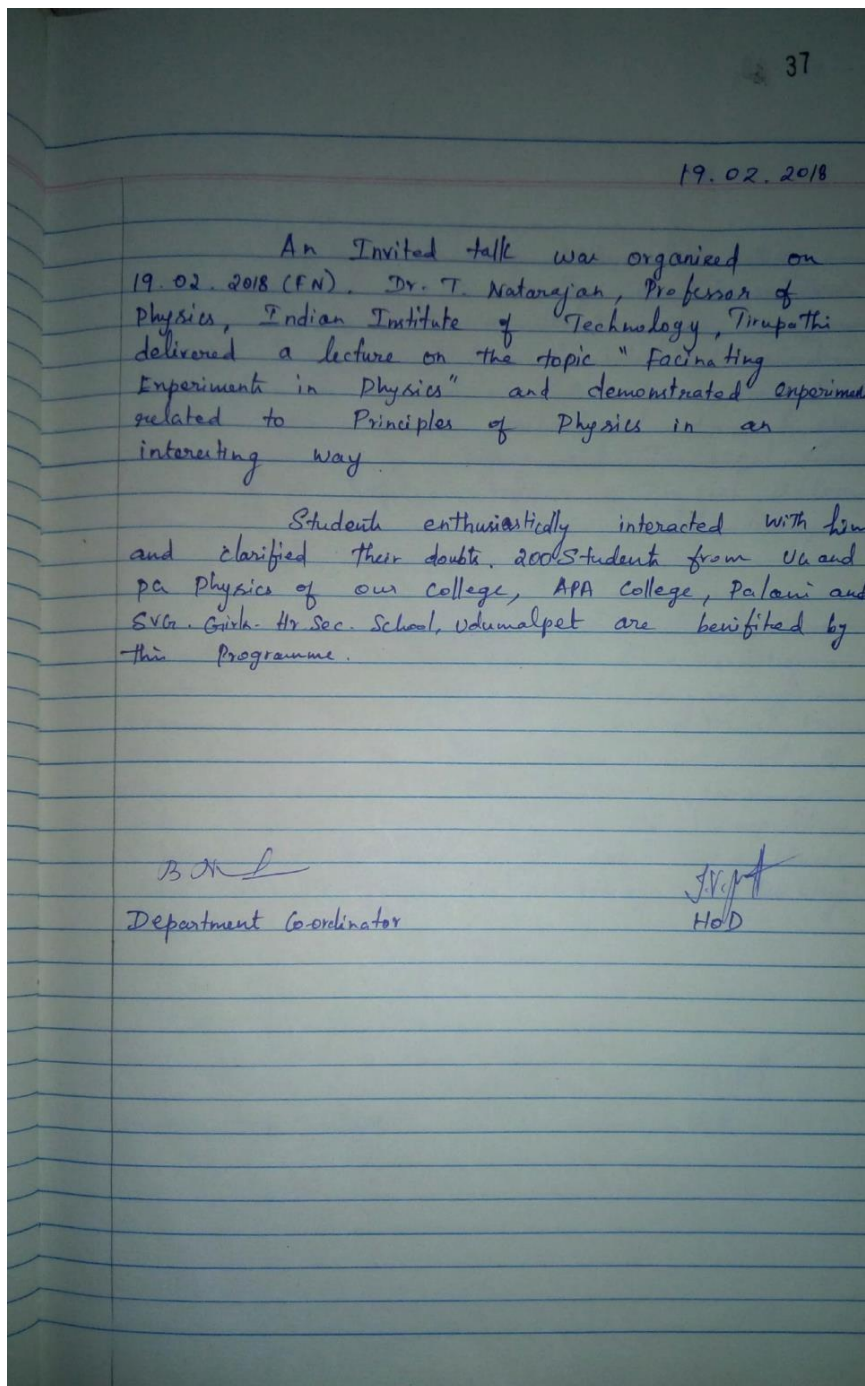 37
19.02.2018
An Invited talk was organised on
19.02.2018 (FN). Dr. T. Natarajan, Professor of
Physics, Indian Institute of Technology, Tirupathi
delivered a lecture on the topic "Facinating
Experiments in Physics" and demonstrated experimen
related to Principles of Physics in an
interesting way.
Students enthusiastically interacted with him
and clarified their doubts. 200 Students from UG and
PG Physics of our College, APA College, Palani and
SVG. Girls. Hr. Sec. School, Udumalpet are benifited by
this Programme.
Department Co-ordinator
HoD